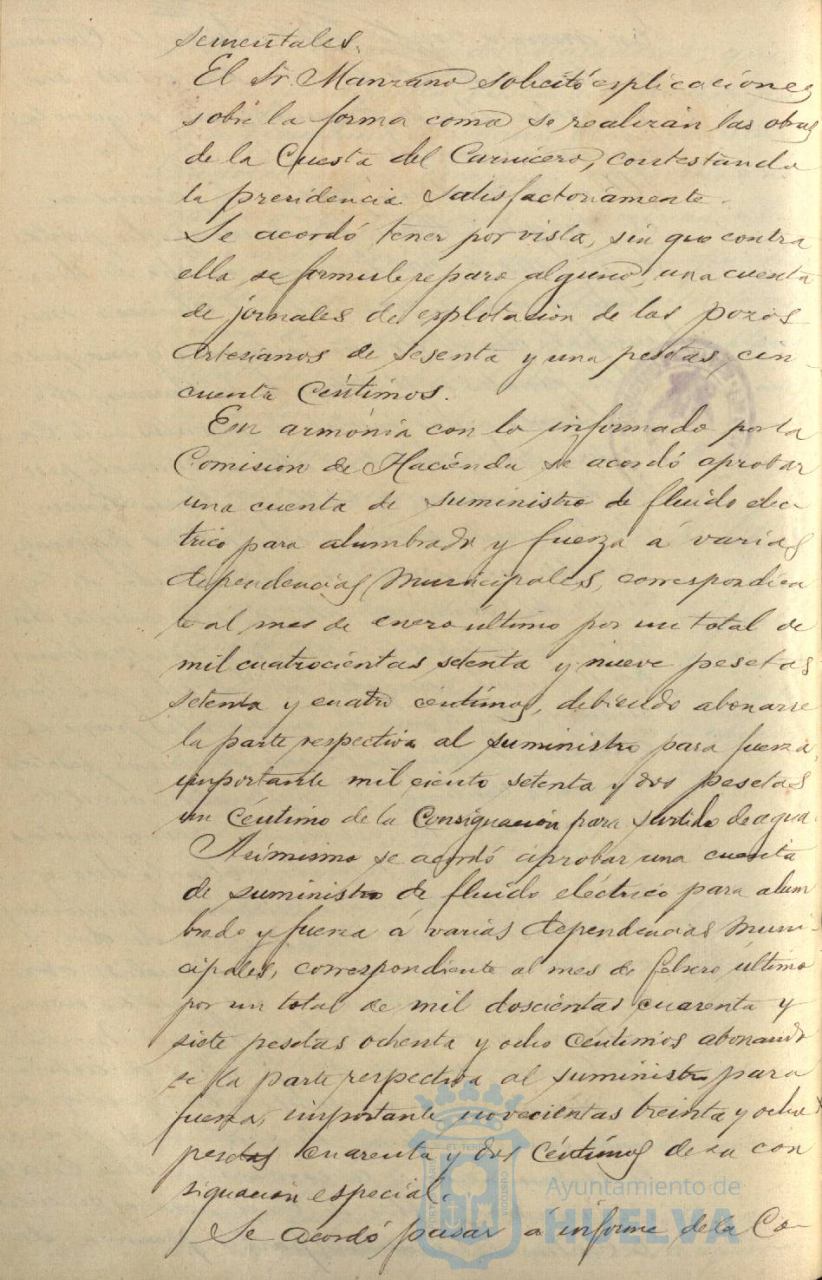 sementales.
El Sr. Manzano solicitó esplicaciones
sobre la forma como se realizan las obras
de la Cuesta del Carnicero, contestando
la presidencia satisfactoriamente.
Se acordó tener por vista, sin que contra
ella se formule reparo alguno, una cuenta
de jornales de esplotacion de los pozos
Artesianos de sesenta y una pesetas, cin-
cuenta céntimos.
En armónia con lo informado por la
Comision de Haciénda se acordó aprobar
una cuenta de suministro de fluido elec
trico para alumbrado y fuerza á varias
dependencias Municipales, correspondien
te al mes de enero último por un total de
mil cuatrocientas setenta y nueve pesetas
setenta y cuatro céntimos, debiendo abonarse
la parte respectiva al suministro para fuerza,
importante mil ciento setenta y dos pesetas
un céntimo de la Consignación para surtido de agua.
Asímismo se acordó aprobar una cuenta
de suministro de fluido eléctrico para alum
brado y fuerza á varias dependencias Muni-
cipales, correspondiente al mes de febrero último
por un total de mil doscientas cuarenta y
siete pesetas ochenta y ocho céntimos abonando
se la parte respectiva al suministro para
fuerza, importante novecientas treinta y ocho
pesetas cuarenta y dos céntimos de su con
signacion especial.
Se acordó pasar á informe de la Co-
Ayuntamiento de
HUELVA